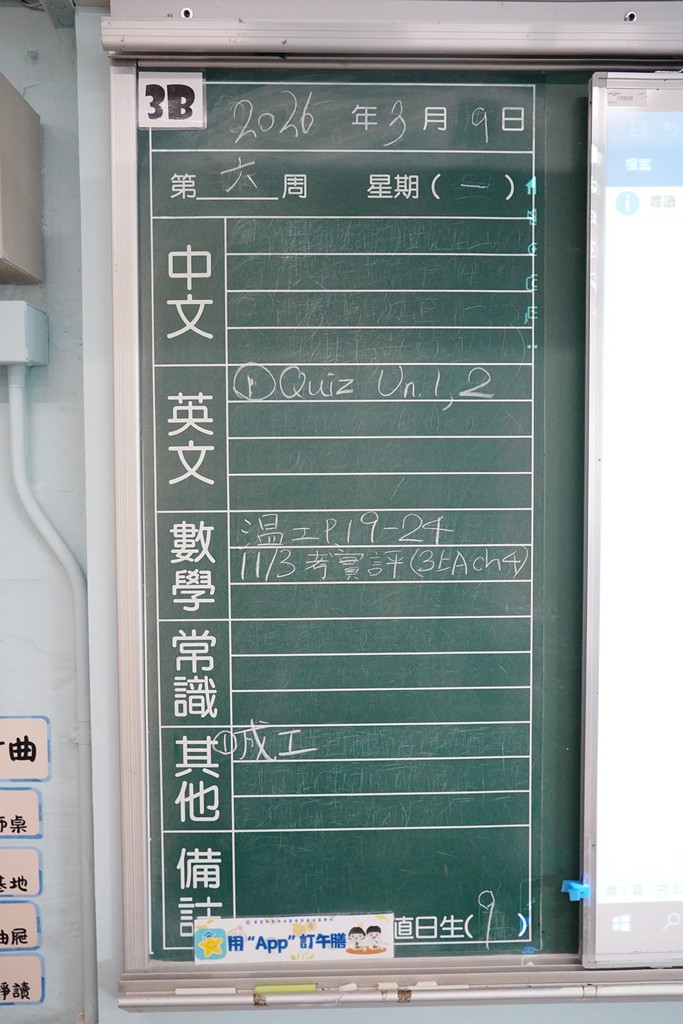 3B
2026 年 3 月 9 日
第 六 周 星期(一)
中文
英文
① Quiz Un. 1, 2
數學
温工 P.19-24
11/3 考實評(3上A ch4)
常識
其他
① 成工
備註
用 “App” 訂午膳
值日生( 9 )
檔案
曲
師桌
基地
抽屜
靜讀